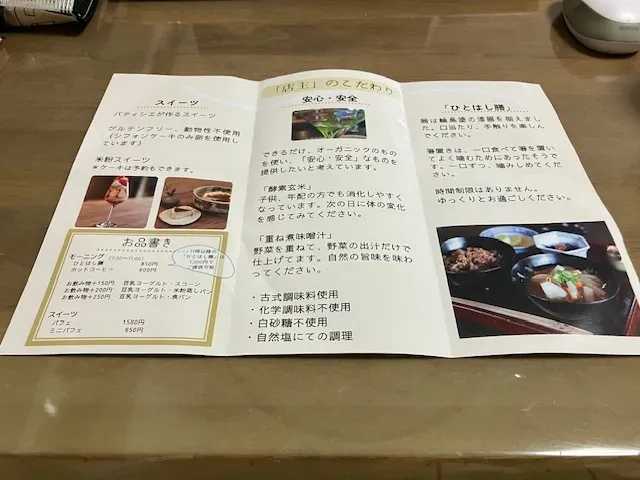 スイーツ
パティシエが作るスイーツ
グルテンフリー、動物性不使用
(シフォンケーキのみ卵を使用し
ています)
米粉スイーツ
*ケーキは予約もできます。
お品書き
モーニング (7:30〜11:00)
ひとはし膳 850円
ホットコーヒー 600円
「ひとはし膳」
1,000円で
ご提供可能
お飲み物+150円 豆乳ヨーグルト・スコーン
お飲み物+200円 豆乳ヨーグルト・米粉蒸しパン
お飲み物+250円 豆乳ヨーグルト・食パン
スイーツ
パフェ 1580円
ミニパフェ 850円
「店主」のこだわり
安心・安全
できるだけ、オーガニックのもの
を使い、「安心・安全」なものを
提供したいと考えています。
「酵素玄米」
子供、年配の方でも消化しやすく
なっています。次の日に体の変化
を感じてみてください。
「重ね煮味噌汁」
野菜を重ねて、野菜の出汁だけで
仕上げてます。自然の旨味を味わ
ってください。
・古式調味料使用
・化学調味料不使用
・白砂糖不使用
・自然塩にての調理
「ひとはし膳」
器は輪島塗の漆器を揃えまし
た。口当たり、手触りを楽しん
でください。
箸置きは、一口食べて箸を置い
てよく噛むためにあったそうで
す。一口ずつ、噛みしめてくだ
さい。
時間制限はありません。
ゆっくりとお過ごしください。